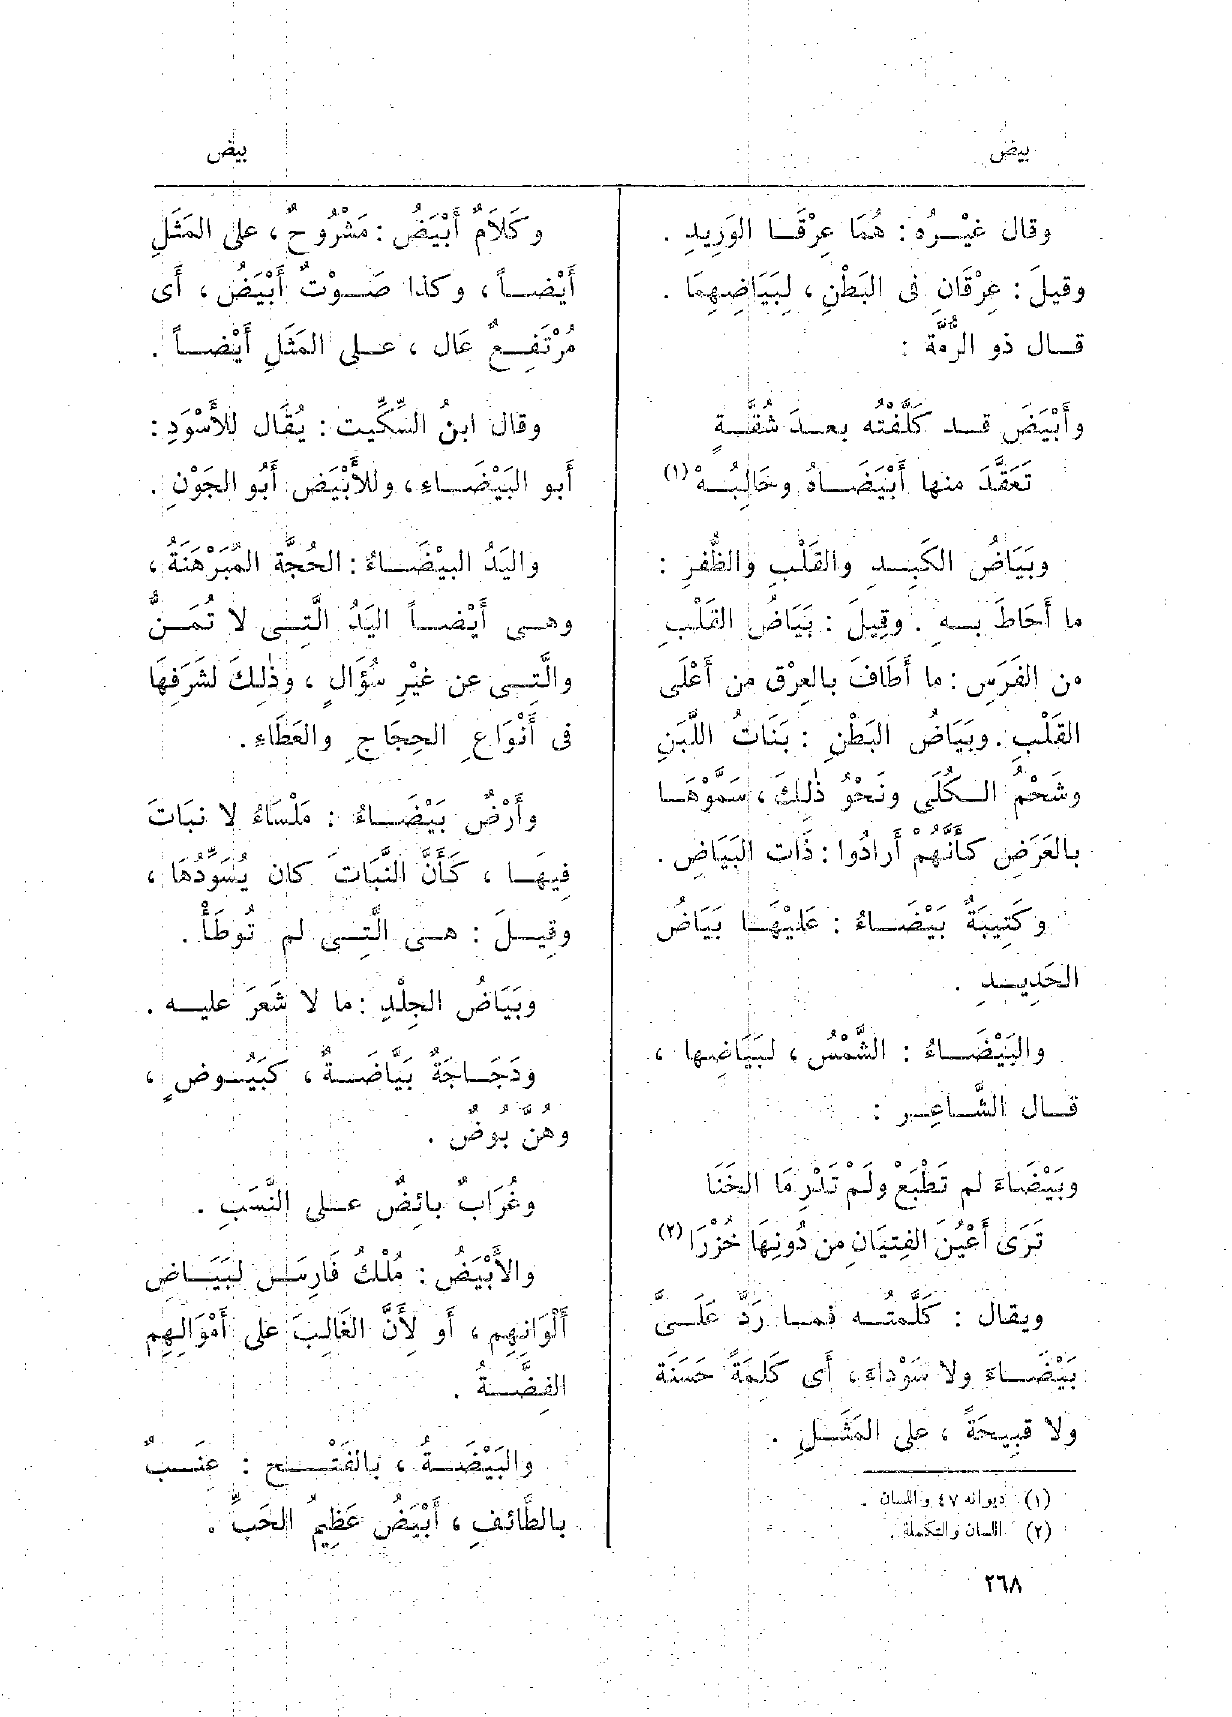 بيض
بيض
وقال غيْـرُه: هُمَا عِرْقَـا الوَرِيدِ .
وقيلَ: عِرْقَانِ فى البَطْنِ، لِبَيَاضِهِمَا .
قـال ذو الرُّمَّة :
وأَبْيَضَ قـد كَلَّفْتُه بعـدَ شُقَّـةٍ
تَعَقَّدَ منها أَبْيَضَـاهُ وحَالِبُـهْ(١)
وبَيَاضُ الكَبِـدِ والقَلْبِ والظُّفرِ :
ما أَحَاطَ بـهِ . وقِيلَ: بَيَاضُ القَلْبِ
من الفَرَسِ: ما أَطَافَ بالعِرْق من أَعْلَى
القَلْبِ. وبَيَاضُ البَطْنِ : بَنَاتُ اللَّبَنِ
وشَحْمُ الـكُلَى ونَحْوُ ذٰلِكَ، سَمَّوْهَـا
بالعَرَضِ كأَنَّهُمْ أَرادُوا: ذَات البَيَاضِ.
وكَتِيبَةٌ بَيْضَـاءُ : عَلَيْهَـا بَيَاضُ
الحَدِيـدِ .
والبَيْضَـاءُ : الشَّمْسُ، لبَيَاضِها ،
قـال الشَّـاعِـر :
وبَيْضَاءَ لم تَطْبَعْ ولَمْ تَدْرِ مَا الخَنَا
تَرَى أَعْيُنَ الفِتيَانِ من دُونِهَا خُزْرَا(٢)
ويقال : كَلَّمتُـه فمـا رَدَّ عَلَـىَّ
بَيْضَـاءَ ولا سَوْداء، أَى كَلِمَةً حَسَنَة
ولا قبِيحَةً ، على المَثَـلِ .
(١) ديوانه ٤٧ واللسان .
(٢) اللسان والتكملة .
وكَلَامٌ أَبْيَضُ: مَشْرُوحٌ، على المَثَلِ
أَيْضـاً ، وكذا صَـوْتٌ أَبْيَضُ، أَى
مُرْتَفِـعٌ عَال ، عـلى المَثَلِ أَيْضـاً .
وقال ابنُ السِّكِّيت: يُقَال للأَسْوَدِ:
أَبو البَيْضَـاءِ، وللأَبْيَض أَبُو الجَوْنِ .
واليَدُ البيْضَـاءُ: الحُجَّة المُبَرْهَنَةُ ،
وهـى أَيْضـاً اليَدُ الَّتِـى لا تُمَـنُّ
والَّتِـى عن غيْرِ سُؤَالٍ ، وذٰلِكَ لشَرَفِهَا
فى أَنْوَاعِ الحِجَاجِ والعَطَاءِ.
وأَرْضٌ بَيْضَـاءُ : مَلْسَاءُ لا نبَاتَ
فِيهَـا ، كَأَنَّ النَّبَاتَ كان يُسَوِّدُهَا ،
وقِيـلَ : هـى الَّتِـى لم تُوطَأْ .
وبَيَاضُ الجِلْدِ: ما لا شَعَرَ عليـه .
ودَجَـاجَةٌ بَيَّاضَـةٌ ، كبَيُـوضٍ ،
وهُنَّ بُوضٌ .
وغُرَابٌ بائِضٌ عـلى النَّسَبِ .
والأَبْيَضُ: مُلْكُ فَارِسَ لبَيَـاضِ
أَلْوَانِهِم ، أَو لِأَنَّ الغَالِبَ على أَمْوَالِهِم
الفِضَّـةُ .
والبَيْضَـةُ ، بالفَتْـحِ : عِنَـبٌ
بالطَّائفِ، أَبْيَضُ عَظِيمُ الحَبِّ .
٢٦٨